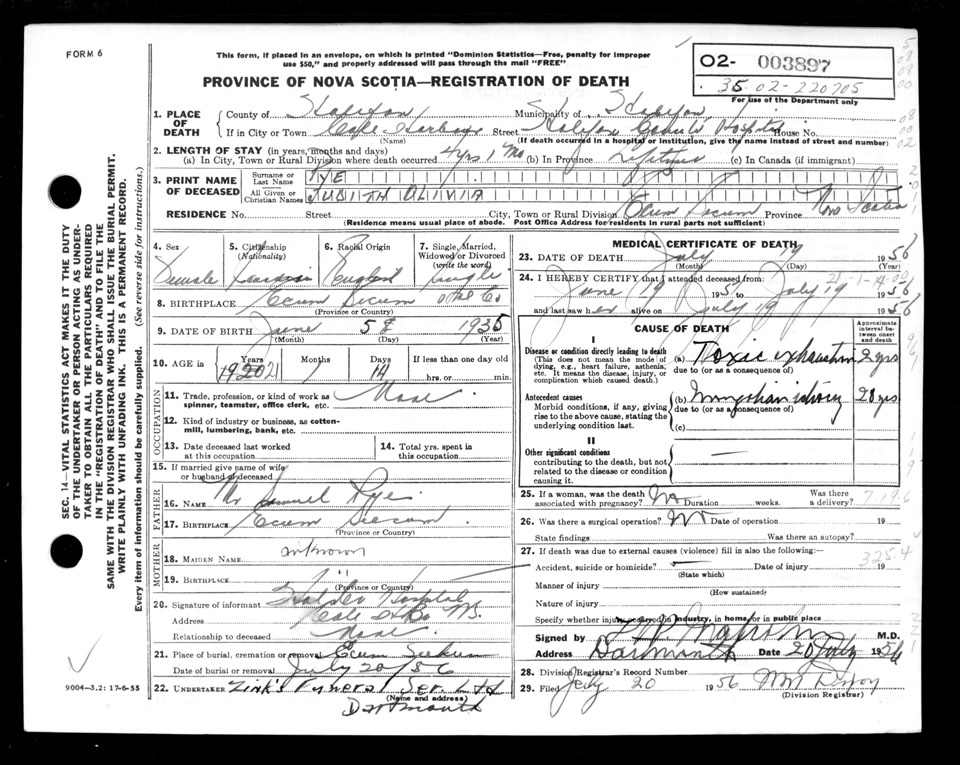 FORM 6
This form, if placed in an envelope, on which is printed "Dominion Statistics—Free, penalty for improper
use $50," and properly addressed will pass through the mail "FREE"
PROVINCE OF NOVA SCOTIA—REGISTRATION OF DEATH
02- 003897
35-02-220705
For use of the Department only
1. PLACE OF DEATH
County of Halifax Municipality of Halifax
If in City or Town Cole Harbour Street Halifax County Hospital House No.
(Name) (If death occurred in a hospital or institution, give the name instead of street and number)
2. LENGTH OF STAY (in years, months and days)
(a) In City, Town or Rural Division where death occurred 4 yrs 1 Mo (b) In Province Lifetime (c) In Canada (if immigrant)
3. PRINT NAME OF DECEASED
Surname or Last Name PYE
All Given or Christian Names JUDITH OLIVIA
RESIDENCE No. Street City, Town or Rural Division Ecum Secum Province Nova Scotia
(Residence means usual place of abode. Post Office Address for residents in rural parts not sufficient)
4. Sex Female
5. Citizenship (Nationality) Canadian
6. Racial Origin English
7. Single, Married, Widowed or Divorced (write the word) Single
8. BIRTHPLACE Ecum Secum Hal Co
(Province or Country)
9. DATE OF BIRTH June 5th 1935
(Month) (Day) (Year)
10. AGE in Years 21 Months 1 Days 14 If less than one day old
hrs. or min.
OCCUPATION
11. Trade, profession, or kind of work as spinner, teamster, office clerk, etc. None
12. Kind of industry or business, as cotton-mill, lumbering, bank, etc.
13. Date deceased last worked at this occupation
14. Total yrs. spent in this occupation
15. If married give name of wife or husband of deceased
FATHER
16. NAME Mr Samuel Pye
17. BIRTHPLACE Ecum Secum
(Province or Country)
MOTHER
18. MAIDEN NAME unknown
19. BIRTHPLACE "
(Province or Country)
20. Signature of informant Halifax Hospital
Address Cole Harbour N.S.
Relationship to deceased None
21. Place of burial, cremation or removal Ecum Secum
Date of burial or removal July 20/56
22. UNDERTAKER Zink's Funeral Ser. Ltd
(Name and address)
Dartmouth
MEDICAL CERTIFICATE OF DEATH
23. DATE OF DEATH July 19 1956
(Month) (Day) (Year)
24. I HEREBY CERTIFY that I attended deceased from:
June 19 195 to July 19 1956
and last saw her alive on July 19 1956
CAUSE OF DEATH
Approximate interval between onset and death
I
Disease or condition directly leading to death
(This does not mean the mode of dying, e.g., heart failure, asthenia, etc. It means the disease, injury, or complication which caused death.)
(a) Toxic exhaustion 2 yrs
due to (or as a consequence of)
Antecedent causes
Morbid conditions, if any, giving rise to the above cause, stating the underlying condition last.
(b) Mongolian idiocy 20 yrs
due to (or as a consequence of)
(c)
II
Other significant conditions
contributing to the death, but not related to the disease or condition causing it.
25. If a woman, was the death associated with pregnancy? No Duration weeks. Was there a delivery?
26. Was there a surgical operation? No Date of operation 19
State findings Was there an autopsy?
27. If death was due to external causes (violence) fill in also the following:—
Accident, suicide or homicide? Date of injury 19
(State which)
Manner of injury
(How sustained)
Nature of injury
Specify whether injury occurred in industry, in home, or in public place
Signed by M.D.
Address Dartmouth Date 20 July 1956
28. Division Registrar's Record Number
29. Filed July 20 1956
(Division Registrar)
SEC. 14—VITAL STATISTICS ACT MAKES IT THE DUTY
OF THE UNDERTAKER OR PERSON ACTING AS UNDERTAKER TO OBTAIN ALL THE PARTICULARS REQUIRED
IN THE "REGISTRATION OF DEATH" AND TO FILE THE
SAME WITH THE DIVISION REGISTRAR WHO SHALL ISSUE THE BURIAL PERMIT.
WRITE PLAINLY WITH UNFADING INK. THIS IS A PERMANENT RECORD.
Every item of information should be carefully supplied. (See reverse side for instructions.)
9004—3.2: 17-6-55